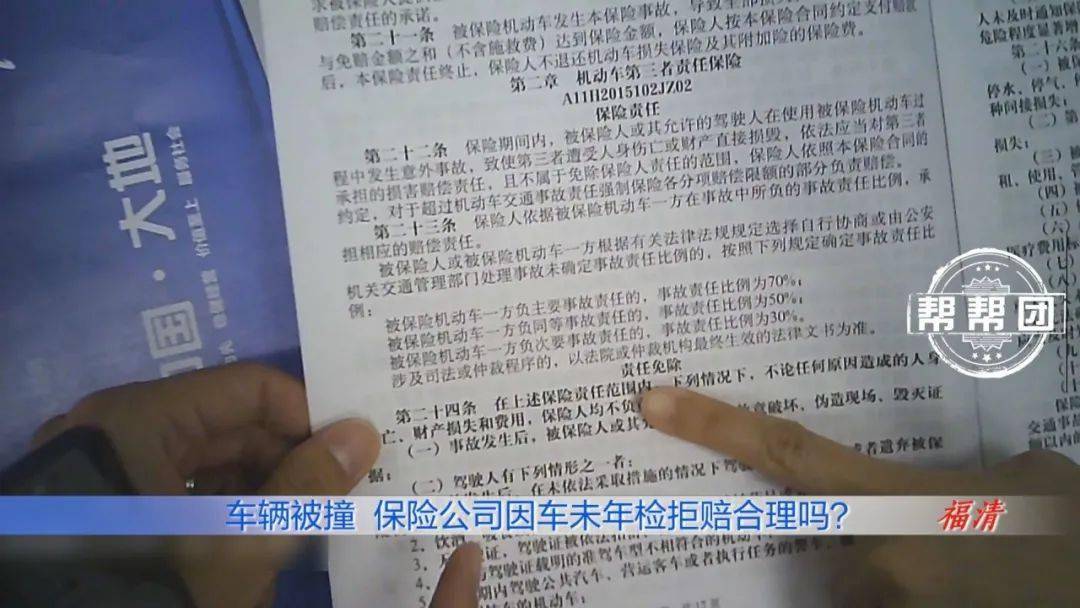 赔偿责任的承诺。
第二十一条 被保险机动车发生本保险事故，导致全部损
与免赔金额之和（不含施救费）达到保险金额，保险人按本保险合同约定支付赔款
后，本保险责任终止，保险人不退还机动车损失保险及其附加险的保险费。
第二章 机动车第三者责任保险
A11H2015102JZ02
保险责任
第二十二条 保险期间内，被保险人或其允许的驾驶人在使用被保险机动车过
程中发生意外事故，致使第三者遭受人身伤亡或财产直接损毁，依法应当对第三者
承担的损害赔偿责任，且不属于免除保险人责任的范围，保险人依照本保险合同的
约定，对于超过机动车交通事故责任强制保险各分项赔偿限额的部分负责赔偿。
第二十三条 保险人依据被保险机动车一方在事故中所负的事故责任比例，承
担相应的赔偿责任。
被保险人或被保险机动车一方根据有关法律法规规定选择自行协商或由公安
机关交通管理部门处理事故未确定事故责任比例的，按照下列规定确定事故责任比
例：
被保险机动车一方负主要事故责任的，事故责任比例为70%；
被保险机动车一方负同等事故责任的，事故责任比例为50%；
被保险机动车一方负次要事故责任的，事故责任比例为30%。
涉及司法或仲裁程序的，以法院或仲裁机构最终生效的法律文书为准。
责任免除
第二十四条 在上述保险责任范围内，下列情况下，不论任何原因造成的人身
亡、财产损失和费用，保险人均不负
（一）事故发生后，被保险人或其允 故意破坏、伪造现场、毁灭证
据；
（二）驾驶人有下列情形之一者：
发生后，在未依法采取措施的情况下驾驶 或者遗弃被保
2、饮酒
3、
驶证，驾驶证被依法扣
与驾驶证载明的准驾车型不相符合的机动车
期内驾驶公共汽车、营运客车或者执行任务的警车
的机动车：
人未及时通知保
危险程度显著增
第二十六条
（一）被保
停水、停气、停
种间接损失；
（二）第
损失；
（三）被
租、使用、管
（四）被
（五）
（六）
医疗费用标
（七）
（八）
（九）
（十）
交通事故
额以内的
大地
价值至上 服务社会
帮帮团
车辆被撞 保险公司因车未年检拒赔合理吗？
福清